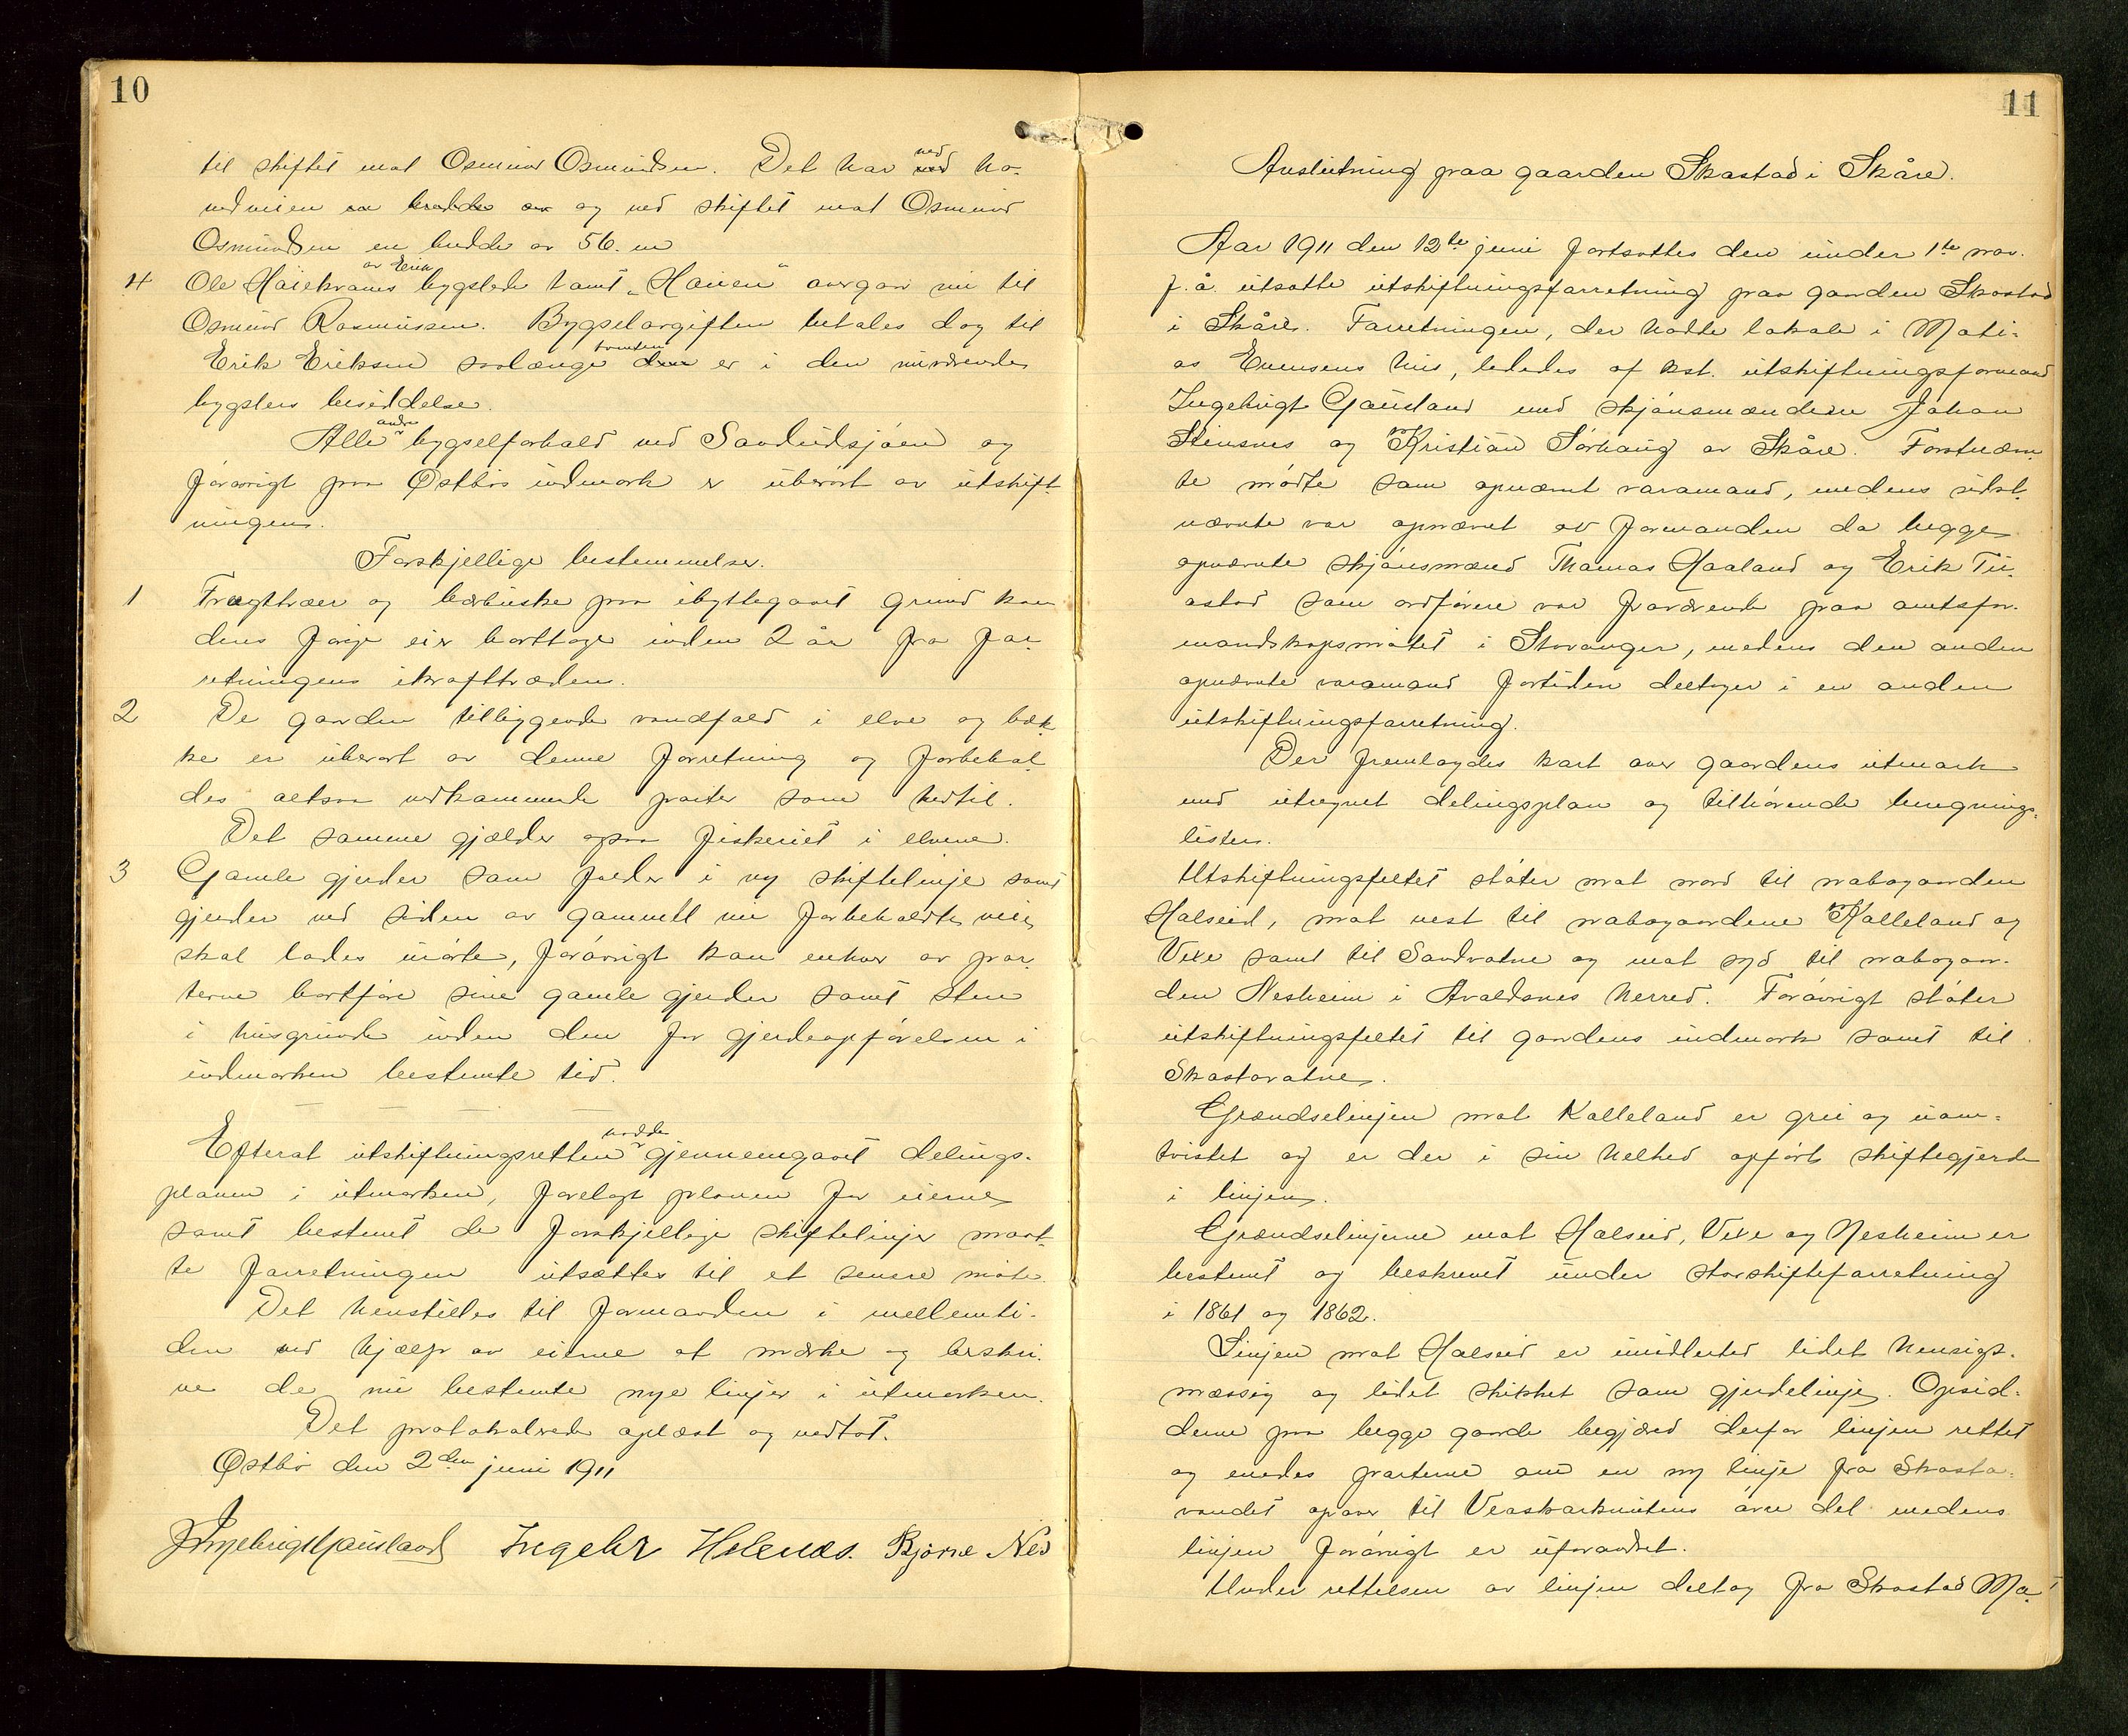 10
til skiftet mot Osmund Osmundsen. Det har ved ho-
vedveien og ved skiftet mot Osmund
Osmundsen en bredde av 56. m
4 Ole Haiekvams av Erik bygslede tomt „Haven" overgaar nu til
Osmund Rasmussen. Bygselavgiften betales dog til
Erik Eriksen saalænge tomten er i den nuværende
bygslers besiddelse.
Alle andre bygselforhold ved Sandeidsjøen og
forøvrigt paa Østbøs indmark er uberørt av utskift-
ningen.
Forskjellige bestemmelser.
1 Frugttrær og bærbuske paa ibyttegaaet grund kan
dens forrige eier borttage inden 2 år fra for-
retningens ikrafttræden.
2 De gaarden tilliggende vandfald i elve og bæk-
ke er uberørt av denne forretning og forbehol-
des altsaa vedkommende parter som hertil.
Det samme gjælder ogsaa fiskeriet i elvene.
3 Gamle gjerder som falder i ny skiftelinje samt
gjerder ved siden av gammell nu forbeholdte veie
skal lades urørte, forøvrigt kan enhver av par-
terne bortføre sine gamle gjerder samt sten
i husgrunde inden den for gjerdeopførelsen i
indmarken bestemte tid.
Efterat utskiftningsretten hadde gjennemgaaet delings-
planen i utmarken, forelagt planen for eierne
samt bestemt de forskjellige skiftelinjer maat-
te forretningen utsættes til et senere møte.
Det henstilles til formanden i mellemti-
den ved hjælp av eierne at merke og beskri-
ve de nu bestemte nye linjer i utmarken.
Det protokolerede oplæst og vedtat.
Østbø den 2den juni 1911
Ingebrigt Gausland Ingebr Helenes. Bjørne Nes
11
Avslutning paa gaarden Skastad i Skåre.
Aar 1911 den 12te juni fortsattes den under 1te nov.
f.å. utsatte utskiftningsforretning paa gaarden Skastad
i Skåre. Forretningen, der hadde lokale i Mati-
as Evensens hus, lededes af kst. utskiftningsformand
Ingebrigt Gausland med skjønsmændene Johan
Stensnes og Kristian Sørhaug av Skåre. Førstnævn-
te mødte som opnævnt varamand, medens sidst-
nævnte var opnævnt av formanden da begge
opnævnte skjønsmænd Thomas Haaland og Erik Tu-
astad som ordførere var fraværende paa amtsfor-
mandskapsmøtet i Stavanger, medens den anden
opnævnte varamand fortiden deltager i en anden
utskiftningsforretning.
Der fremlagdes kart over gaardens utmark
med utregnet delingsplan og tilhørende beregnings-
lister.
Utskiftningsfeltet støter mot nord til nabogaarden
Halseid, mot vest til nabogaardene Kalleland og
Vixe samt til Sandvatne og mot syd til nabogaar-
den Nesheim i Avaldsnes herred. Forøvrigt støter
utskiftningsfeltet til gaardens indmark samt til
Skastavatne.
Grændselinjen mot Kalleland er grei og uom-
tvistet og er der i sin helhed opført skiftegjerde
i linjen.
Grændselinjerne mot Halseid, Vixe og Nesheim er
bestemt og beskrevet under storskifteforretning
i 1861 og 1862.
Linjen mot Halseid er imidlertid lidet hensigts-
mæssig og lidet skikket som gjerdelinje. Opsid-
derne paa begge gaarde begjæred derfor linjen rettet
og enedes parterne om en ny linje fra Skasta-
vandet opover til Veaskarknutens øvre del medens
linjen forøvrigt er uforandret.
Under rettelsen av linjen deltog fra Skastad Ma-